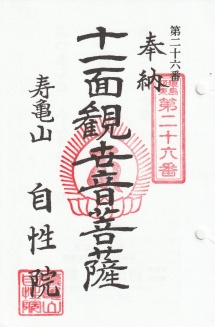 第二十六番
奉納
第二十六番
十一面観世音菩薩
寿亀山
自性院